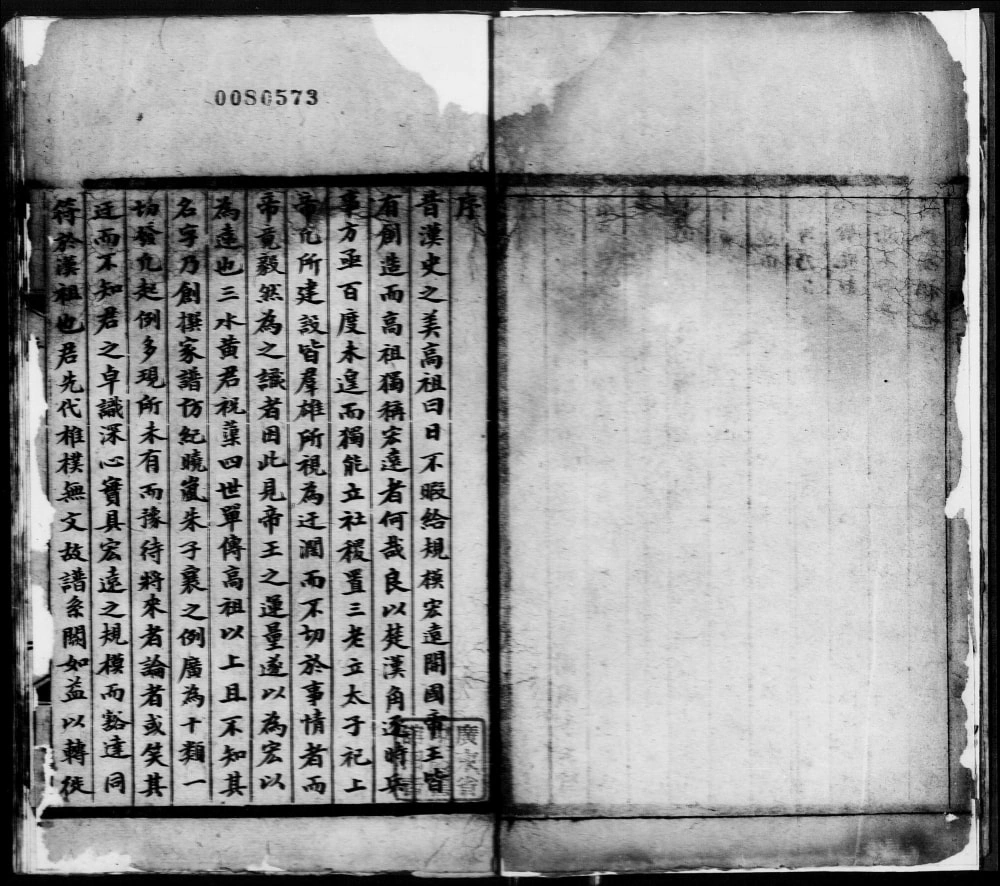 0080573
序
昔漢史之美高祖曰日不暇給規模宏遠開國帝王皆
有創造而高祖獨稱宏遠者何哉良以楚漢角逐時兵
事方亟百度未遑而獨能立社稷置三老立太子祀上
帝凡所建設皆羣雄所視為迂濶而不切於事情者而
帝竟毅然為之識者因此見帝王之運量遂以為宏以
為遠也三水黄君祝蕖四世單傳高祖以上且不知其
名字乃創撰家譜仿紀曉嵐朱子襄之例廣為十類一
切發凡起例多現所未有而豫待將來者論者或笑其
迂而不知君之卓識深心實具宏遠之規模而豁達同
符於漢祖也君先代椎樸無文故譜系闕如益以轉徙
廣東省